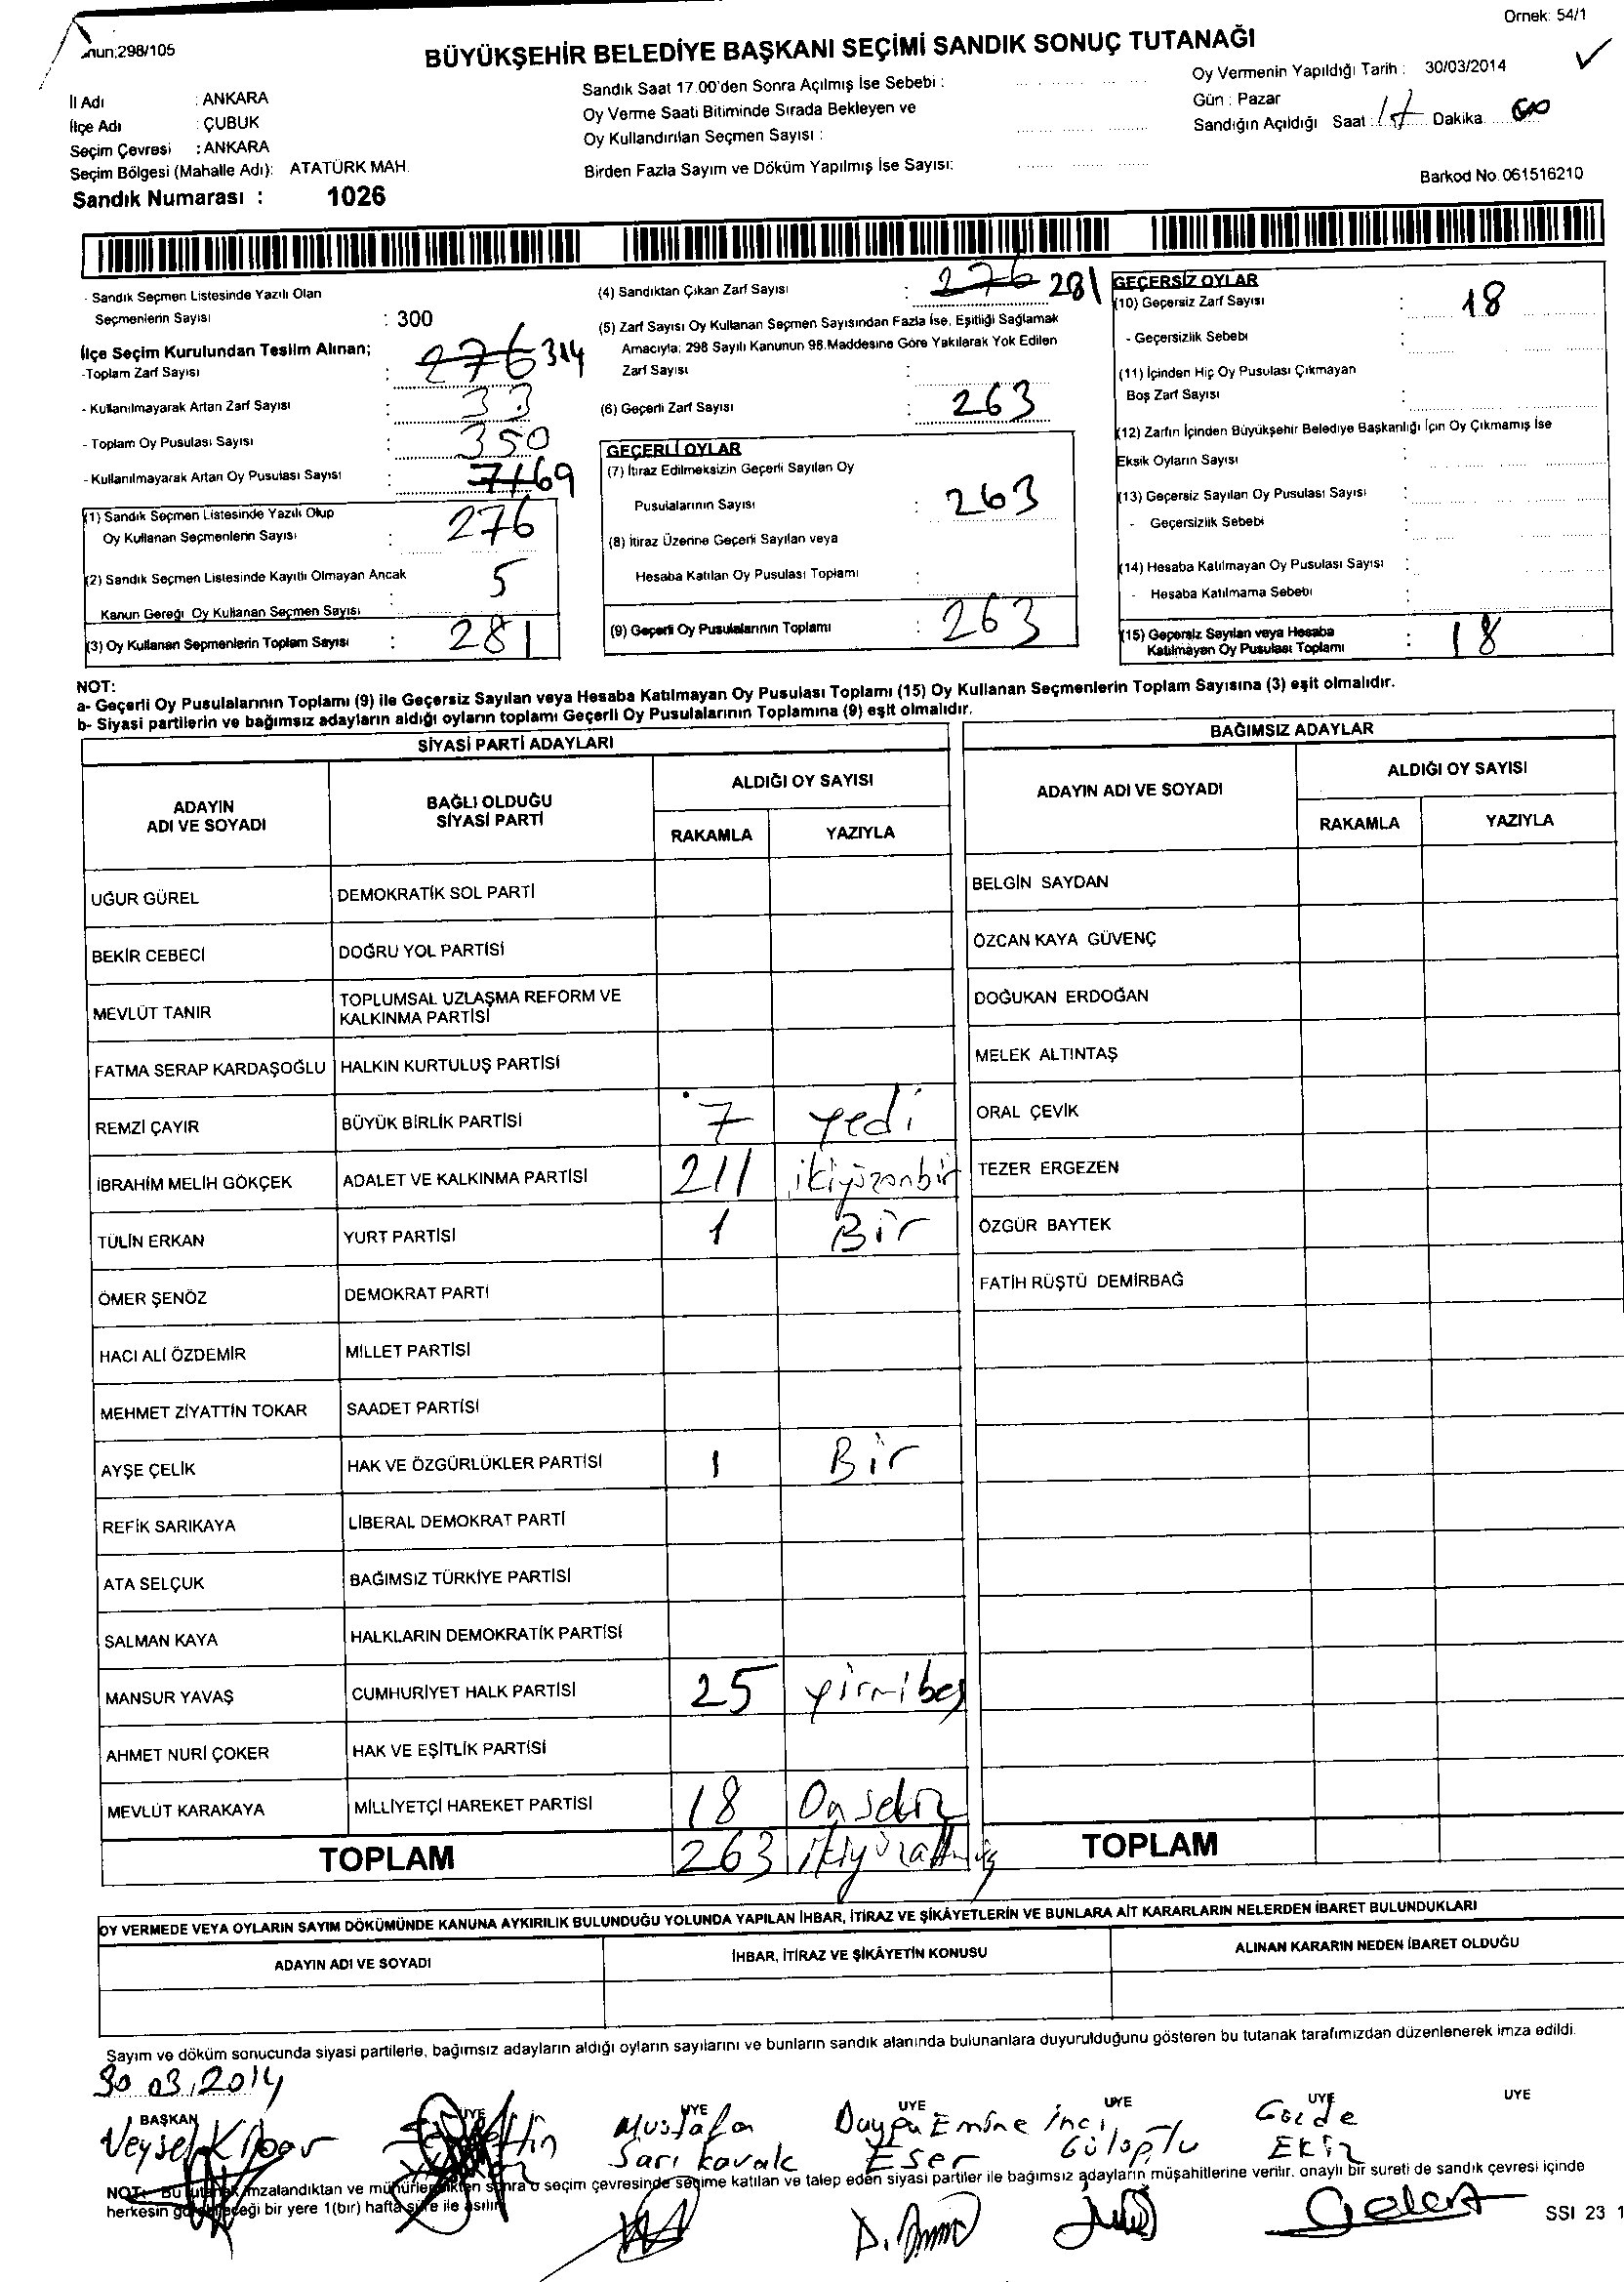 Ornek: 54/1
nun:298/105
BÜYÜKŞEHİR BELEDİYE BAŞKANI SEÇİMİ SANDIK SONUÇ TUTANAĞI
İl Adı : ANKARA
İlçe Adı : ÇUBUK
Seçim Çevresi : ANKARA
Seçim Bölgesi (Mahalle Adı): ATATÜRK MAH.
Sandık Numarası : 1026
Sandık Saat 17.00'den Sonra Açılmış İse Sebebi :
Oy Verme Saati Bitiminde Sırada Bekleyen ve
Oy Kullandırılan Seçmen Sayısı :
Birden Fazla Sayım ve Döküm Yapılmış İse Sayısı:
Oy Vermenin Yapıldığı Tarih : 30/03/2014
Gün : Pazar
Sandığın Açıldığı Saat : 17 Dakika
Barkod No.061516210
- Sandık Seçmen Listesinde Yazılı Olan
Seçmenlerin Sayısı : 300
İlçe Seçim Kurulundan Teslim Alınan;
-Toplam Zarf Sayısı : 276 314
- Kullanılmayarak Artan Zarf Sayısı : 33
- Toplam Oy Pusulası Sayısı : 350
- Kullanılmayarak Artan Oy Pusulası Sayısı : 69
(1) Sandık Seçmen Listesinde Yazılı Olup
Oy Kullanan Seçmenlerin Sayısı : 276
(2) Sandık Seçmen Listesinde Kayıtlı Olmayan Ancak
Kanun Gereği Oy Kullanan Seçmen Sayısı : 5
(3) Oy Kullanan Seçmenlerin Toplam Sayısı : 281
(4) Sandıktan Çıkan Zarf Sayısı : 276 281
(5) Zarf Sayısı Oy Kullanan Seçmen Sayısından Fazla İse, Eşitliği Sağlamak
Amacıyla; 298 Sayılı Kanunun 98.Maddesine Göre Yakılarak Yok Edilen
Zarf Sayısı :
(6) Geçerli Zarf Sayısı : 263
GEÇERLİ OYLAR
(7) İtiraz Edilmeksizin Geçerli Sayılan Oy
Pusulalarının Sayısı : 263
(8) İtiraz Üzerine Geçerli Sayılan veya
Hesaba Katılan Oy Pusulası Toplamı :
(9) Geçerli Oy Pusulalarının Toplamı : 263
GEÇERSİZ OYLAR
(10) Geçersiz Zarf Sayısı : 18
- Geçersizlik Sebebi :
(11) İçinden Hiç Oy Pusulası Çıkmayan
Boş Zarf Sayısı :
(12) Zarfın İçinden Büyükşehir Belediye Başkanlığı İçin Oy Çıkmamış İse
Eksik Oyların Sayısı :
(13) Geçersiz Sayılan Oy Pusulası Sayısı :
- Geçersizlik Sebebi :
(14) Hesaba Katılmayan Oy Pusulası Sayısı :
- Hesaba Katılmama Sebebi :
(15) Geçersiz Sayılan veya Hesaba
Katılmayan Oy Pusulası Toplamı : 18
NOT:
a- Geçerli Oy Pusulalarının Toplamı (9) ile Geçersiz Sayılan veya Hesaba Katılmayan Oy Pusulası Toplamı (15) Oy Kullanan Seçmenlerin Toplam Sayısına (3) eşit olmalıdır.
b- Siyasi partilerin ve bağımsız adayların aldığı oyların toplamı Geçerli Oy Pusulalarının Toplamına (9) eşit olmalıdır.
SİYASİ PARTİ ADAYLARI
ADAYIN ADI VE SOYADI
BAĞLI OLDUĞU SİYASİ PARTİ
ALDIĞI OY SAYISI
RAKAMLA YAZIYLA
UĞUR GÜREL DEMOKRATİK SOL PARTİ
BEKİR CEBECİ DOĞRU YOL PARTİSİ
MEVLÜT TANIR TOPLUMSAL UZLAŞMA REFORM VE KALKINMA PARTİSİ
FATMA SERAP KARDAŞOĞLU HALKIN KURTULUŞ PARTİSİ
REMZİ ÇAYIR BÜYÜK BİRLİK PARTİSİ 7 yedi
İBRAHİM MELİH GÖKÇEK ADALET VE KALKINMA PARTİSİ 211 ikiyüzonbir
TÜLİN ERKAN YURT PARTİSİ 1 Bir
ÖMER ŞENÖZ DEMOKRAT PARTİ
HACI ALİ ÖZDEMİR MİLLET PARTİSİ
MEHMET ZİYATTİN TOKAR SAADET PARTİSİ
AYŞE ÇELİK HAK VE ÖZGÜRLÜKLER PARTİSİ 1 Bir
REFİK SARIKAYA LİBERAL DEMOKRAT PARTİ
ATA SELÇUK BAĞIMSIZ TÜRKİYE PARTİSİ
SALMAN KAYA HALKLARIN DEMOKRATİK PARTİSİ
MANSUR YAVAŞ CUMHURİYET HALK PARTİSİ 25 yirmibeş
AHMET NURİ ÇOKER HAK VE EŞİTLİK PARTİSİ
MEVLÜT KARAKAYA MİLLİYETÇİ HAREKET PARTİSİ 18 Onsekiz
TOPLAM 263
BAĞIMSIZ ADAYLAR
ADAYIN ADI VE SOYADI
ALDIĞI OY SAYISI
RAKAMLA YAZIYLA
BELGİN SAYDAN
ÖZCAN KAYA GÜVENÇ
DOĞUKAN ERDOĞAN
MELEK ALTINTAŞ
ORAL ÇEVİK
TEZER ERGEZEN
ÖZGÜR BAYTEK
FATİH RÜŞTÜ DEMİRBAĞ
TOPLAM
OY VERMEDE VEYA OYLARIN SAYIM DÖKÜMÜNDE KANUNA AYKIRILIK BULUNDUĞU YOLUNDA YAPILAN İHBAR, İTİRAZ VE ŞİKÂYETLERİN VE BUNLARA AİT KARARLARIN NELERDEN İBARET BULUNDUKLARI
ADAYIN ADI VE SOYADI İHBAR, İTİRAZ VE ŞİKÂYETİN KONUSU ALINAN KARARIN NEDEN İBARET OLDUĞU
Sayım ve döküm sonucunda siyasi partilerle, bağımsız adayların aldığı oyların sayılarını ve bunların sandık alanında bulunanlara duyurulduğunu gösteren bu tutanak tarafımızdan düzenlenerek imza edildi.
30 03.2014
BAŞKAN ÜYE ÜYE ÜYE ÜYE ÜYE ÜYE
Veysel
Mustafa Sarı kavak
Duygu Emine Eser
İnci
EKİZ
NOT: Bu tutanak imzalandıktan ve mühürlendikten sonra o seçim çevresinde seçime katılan ve talep eden siyasi partiler ile bağımsız adayların müşahitlerine verilir. onaylı bir sureti de sandık çevresi içinde
herkesin göreceği bir yere 1(bir) hafta süre ile asılır.
SSI 23 1